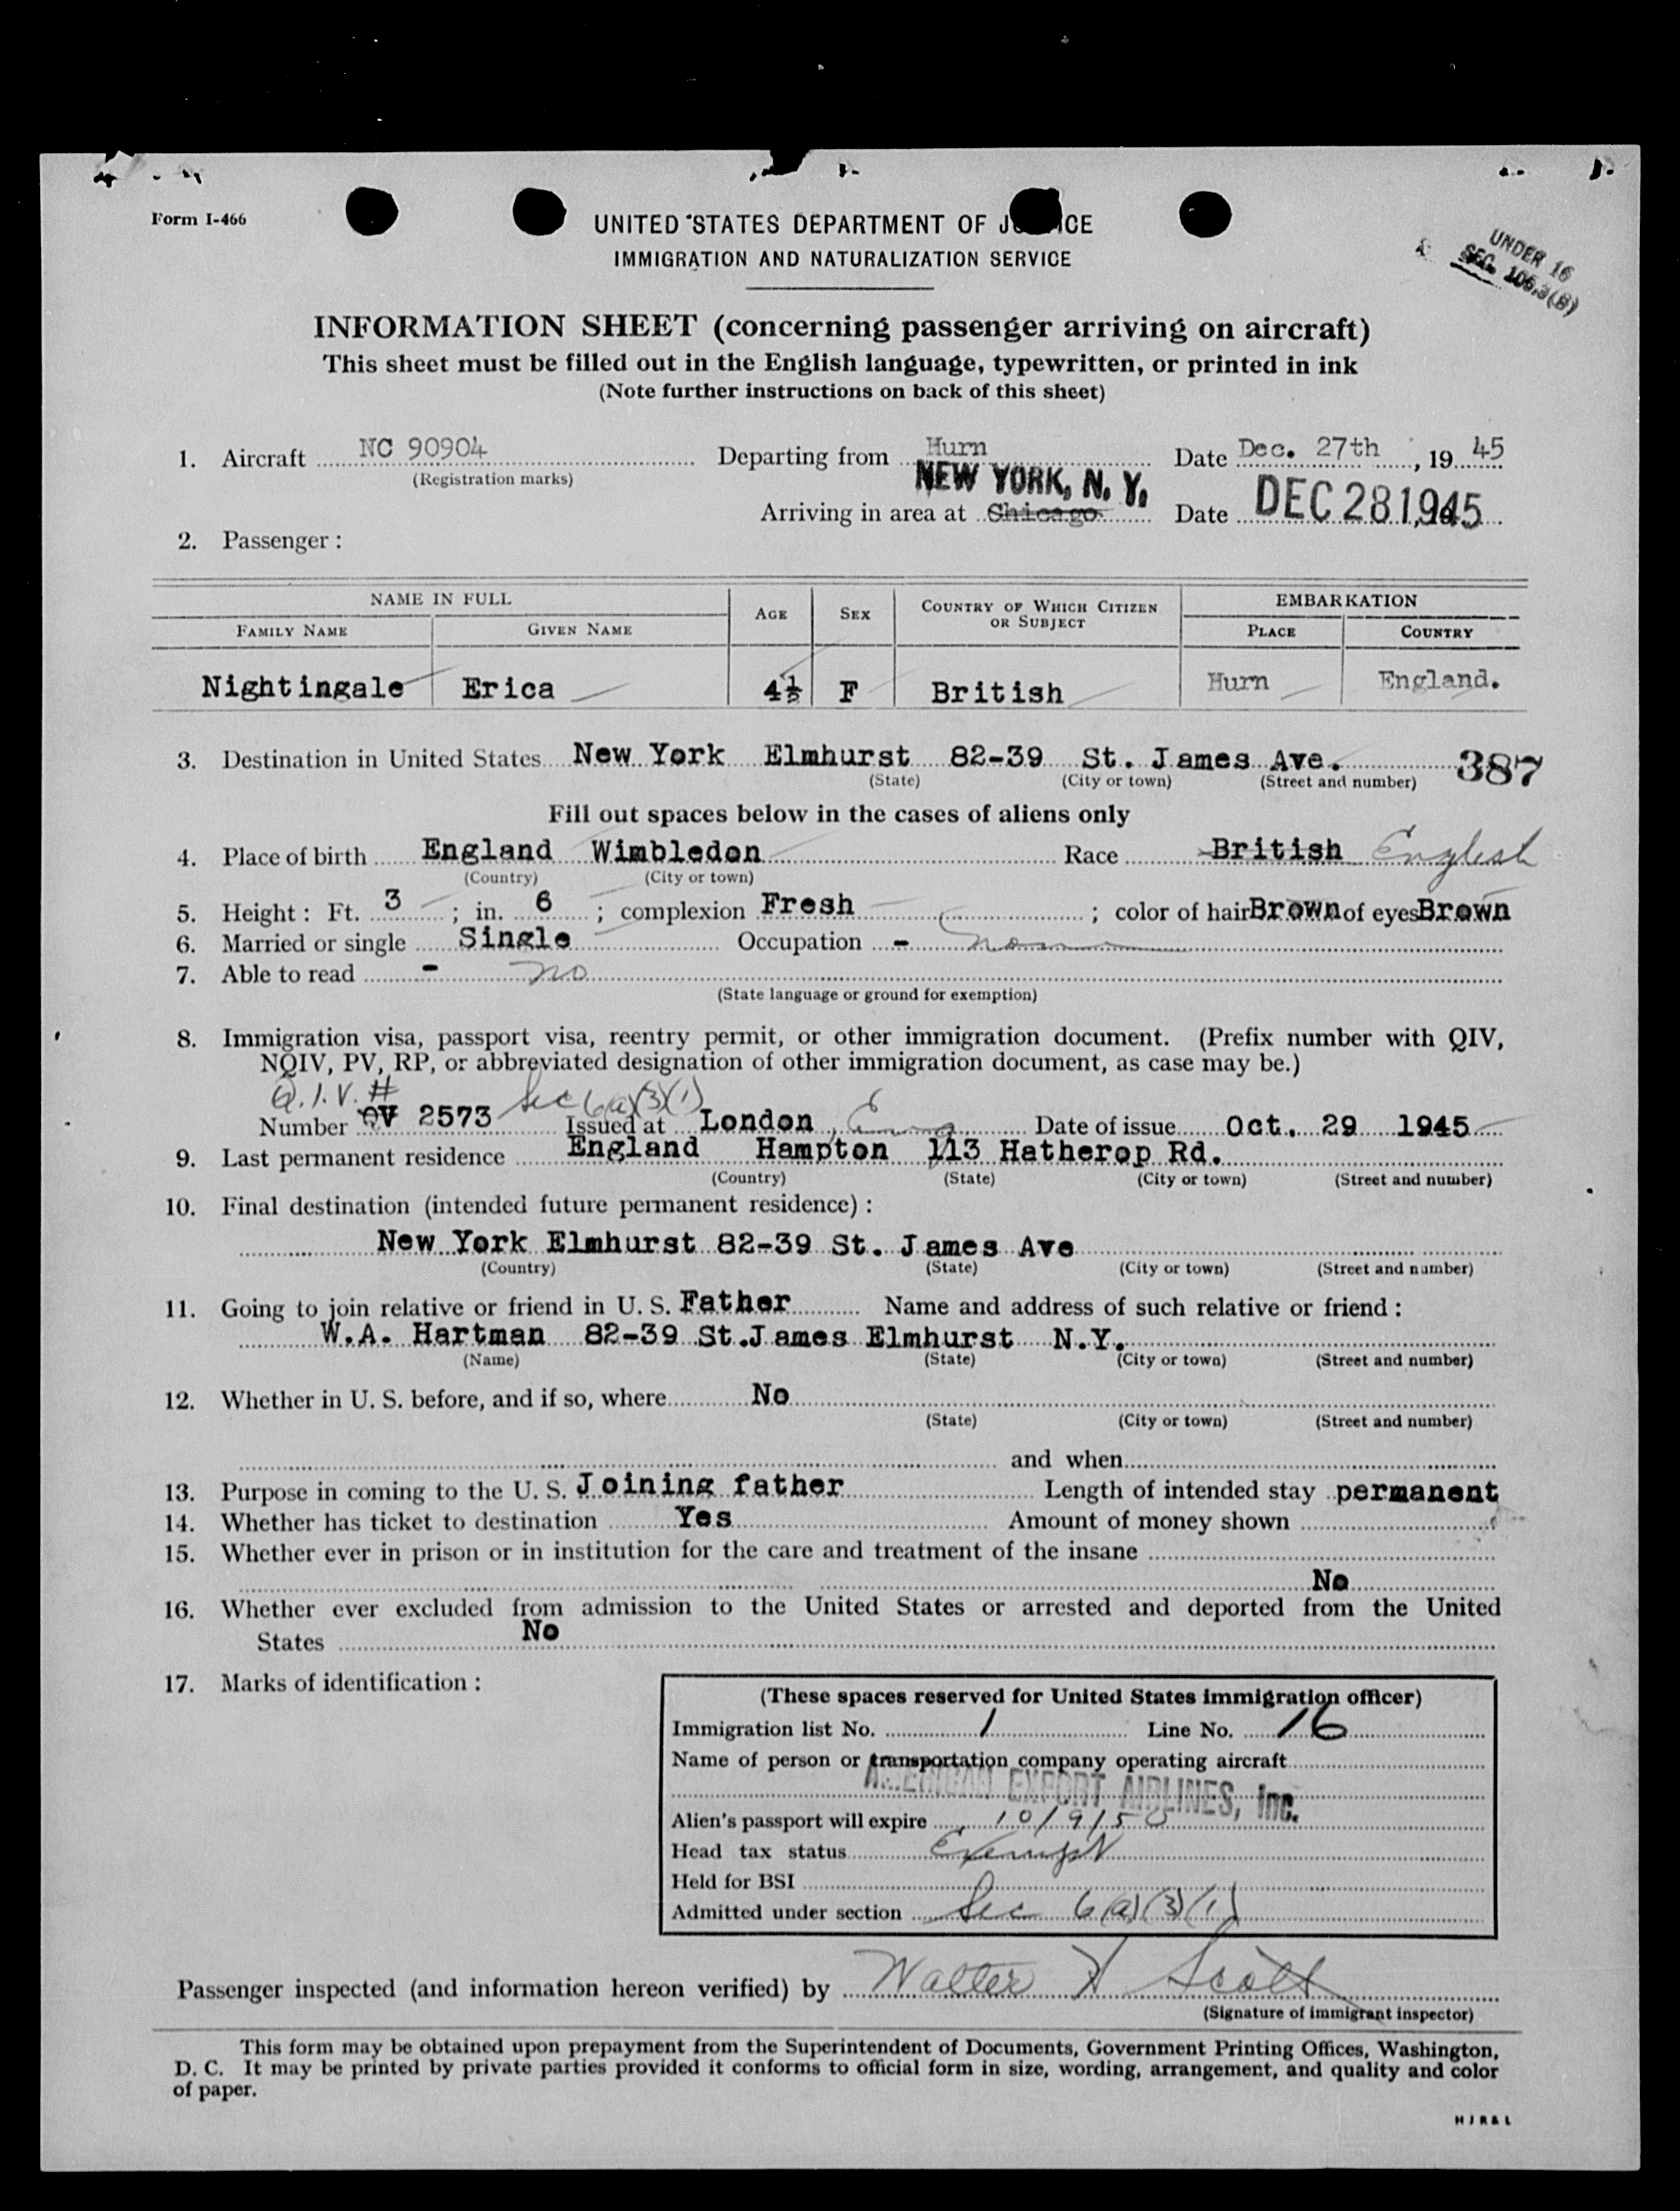 Form I-466
UNITED STATES DEPARTMENT OF J ICE
IMMIGRATION AND NATURALIZATION SERVICE
UNDER 16
SEC. 106.3(B)
INFORMATION SHEET (concerning passenger arriving on aircraft)
This sheet must be filled out in the English language, typewritten, or printed in ink
(Note further instructions on back of this sheet)
1. Aircraft NC 90904 Departing from Hurn Date Dec. 27th, 19 45
(Registration marks)
NEW YORK, N. Y.
Arriving in area at Chicago Date DEC 28 1945
2. Passenger :
NAME IN FULL AGE SEX COUNTRY OF WHICH CITIZEN OR SUBJECT EMBARKATION
FAMILY NAME GIVEN NAME PLACE COUNTRY
Nightingale Erica 4½ F British Hurn England.
3. Destination in United States New York Elmhurst 82-39 St. James Ave. 387
(State) (City or town) (Street and number)
Fill out spaces below in the cases of aliens only
4. Place of birth England Wimbledon Race British English
(Country) (City or town)
5. Height : Ft. 3 ; in. 6 ; complexion Fresh ; color of hair Brown of eyes Brown
6. Married or single Single Occupation - none
7. Able to read - no
(State language or ground for exemption)
8. Immigration visa, passport visa, reentry permit, or other immigration document. (Prefix number with QIV,
NQIV, PV, RP, or abbreviated designation of other immigration document, as case may be.)
Q.I.V. # Sec 6(a)(3)(1)
Number QV 2573 Issued at London, Eng Date of issue Oct. 29 1945
9. Last permanent residence England Hampton 113 Hatherop Rd.
(Country) (State) (City or town) (Street and number)
10. Final destination (intended future permanent residence) :
New York Elmhurst 82-39 St. James Ave
(Country) (State) (City or town) (Street and number)
11. Going to join relative or friend in U. S. Father Name and address of such relative or friend :
W.A. Hartman 82-39 St.James Elmhurst N.Y.
(Name) (State) (City or town) (Street and number)
12. Whether in U. S. before, and if so, where No
(State) (City or town) (Street and number)
and when
13. Purpose in coming to the U. S. Joining father Length of intended stay permanent
14. Whether has ticket to destination Yes Amount of money shown
15. Whether ever in prison or in institution for the care and treatment of the insane
No
16. Whether ever excluded from admission to the United States or arrested and deported from the United
States No
17. Marks of identification :
(These spaces reserved for United States immigration officer)
Immigration list No. 1 Line No. 16
Name of person or transportation company operating aircraft
AMERICAN EXPORT AIRLINES, Inc.
Alien's passport will expire 10/9/50
Head tax status Exempt
Held for BSI
Admitted under section Sec 6(a)(3)(1)
Passenger inspected (and information hereon verified) by Walter A Scott
(Signature of immigrant inspector)
This form may be obtained upon prepayment from the Superintendent of Documents, Government Printing Offices, Washington,
D. C. It may be printed by private parties provided it conforms to official form in size, wording, arrangement, and quality and color
of paper.
HJR&L